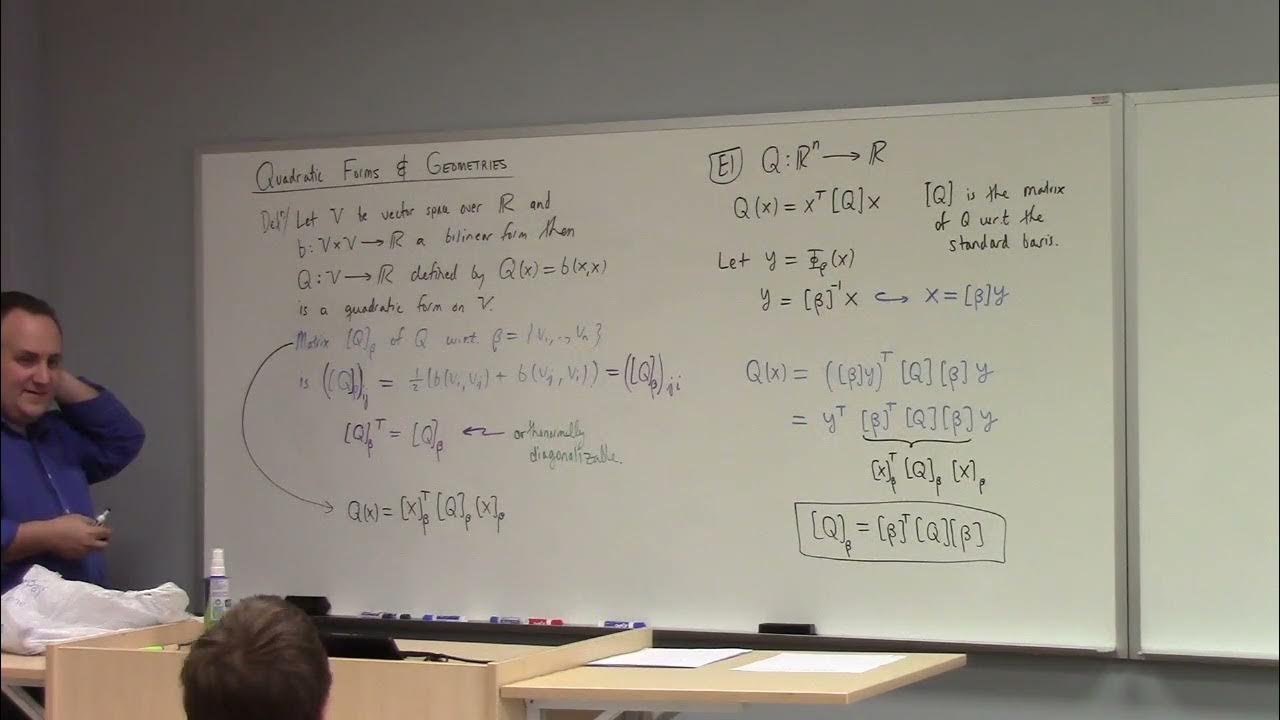 Quadratic Forms & Geometries
Defⁿ/ Let V be vector space over ℝ and
b: V×V → ℝ a bilinear form then
Q: V → ℝ defined by Q(x) = b(x,x)
is a quadratic form on V.
Matrix [Q]_β of Q w.r.t. β = {v₁, .., vₙ}
is ([Q]_β)_ij = ½(b(vᵢ,vⱼ) + b(vⱼ,vᵢ)) = ([Q]_β)_ji
[Q]_β^T = [Q]_β ← orthonormally
diagonalizable.
Q(x) = [x]_β^T [Q]_β [x]_β
E1 Q: ℝⁿ → ℝ
Q(x) = x^T [Q] x
[Q] is the matrix
of Q w.r.t the
standard basis.
Let y = Φ_β(x)
y = [β]⁻¹ x ↪ x = [β]y
Q(x) = ([β]y)^T [Q][β] y
= y^T [β]^T [Q][β] y
[x]_β^T [Q]_β [x]_β
[Q]_β = [β]^T [Q][β]